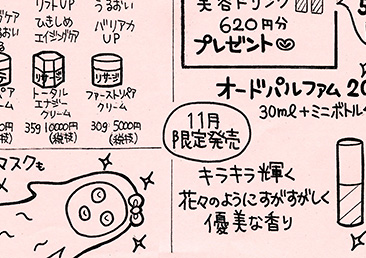 リフトUP
うるおい
ひきしめ
エイジングケア
バリアカ
UP
リサージ
リサージ
トータル
エナジー
クリーム
ファーストリペア
クリーム
35g 10000円
(税抜)
30g 5000円
(税抜)
マスクも
美容ドリンク
620円分
プレゼント
オードパルファム 20
30ml+ミニボトル
11月
限定発売
キラキラ輝く
花々のようにすがすがしく
優美な香り